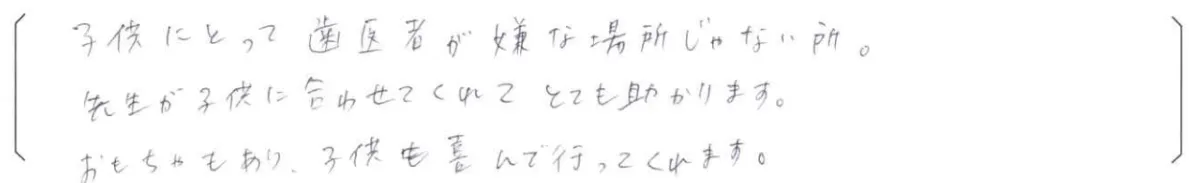 子供にとって歯医者が嫌な場所じゃない所。
先生が子供に合わせてくれてとても助かります。
おもちゃもあり、子供も喜んで行ってくれます。